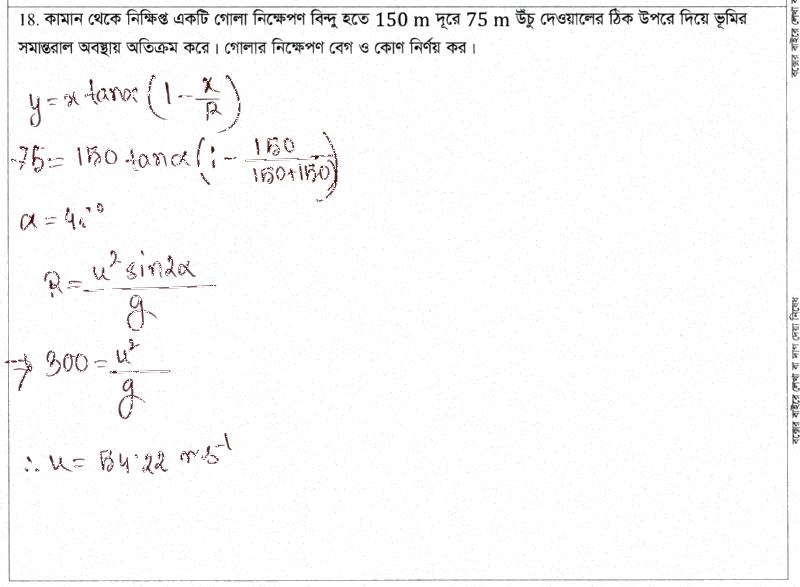 18. কামান থেকে নিক্ষিপ্ত একটি গোলা নিক্ষেপণ বিন্দু হতে 150 m দূরে 75 m উঁচু দেওয়ালের ঠিক উপরে দিয়ে ভূমির
সমান্তরাল অবস্থায় অতিক্রম করে। গোলার নিক্ষেপণ বেগ ও কোণ নির্ণয় কর।
y = x tanα (1 - x/R)
→ 75 = 150 tanα (1 - 150/(150+150))
α =
R = u² sin2α / g
→ 300 = u² / g
∴ u = 54.22 ms⁻¹
বক্সের বাইরে লেখা বা দাগ দেয়া নিষেধ